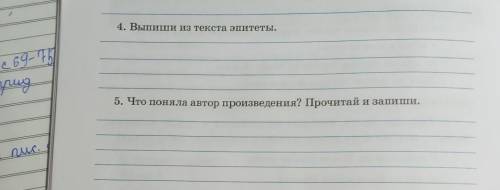 4. Выпиши из текста эпитеты.
с 69-75
5. Что поняла автор произведения? Прочитай и запиши.
пис.